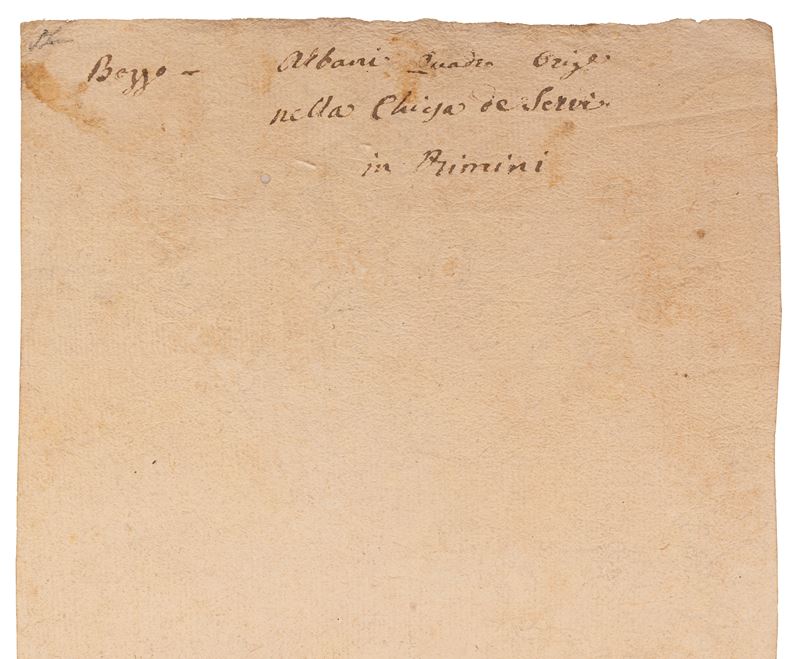 Bozzo - Albani Quadro Origl
nella Chiesa de Servi
in Rimini